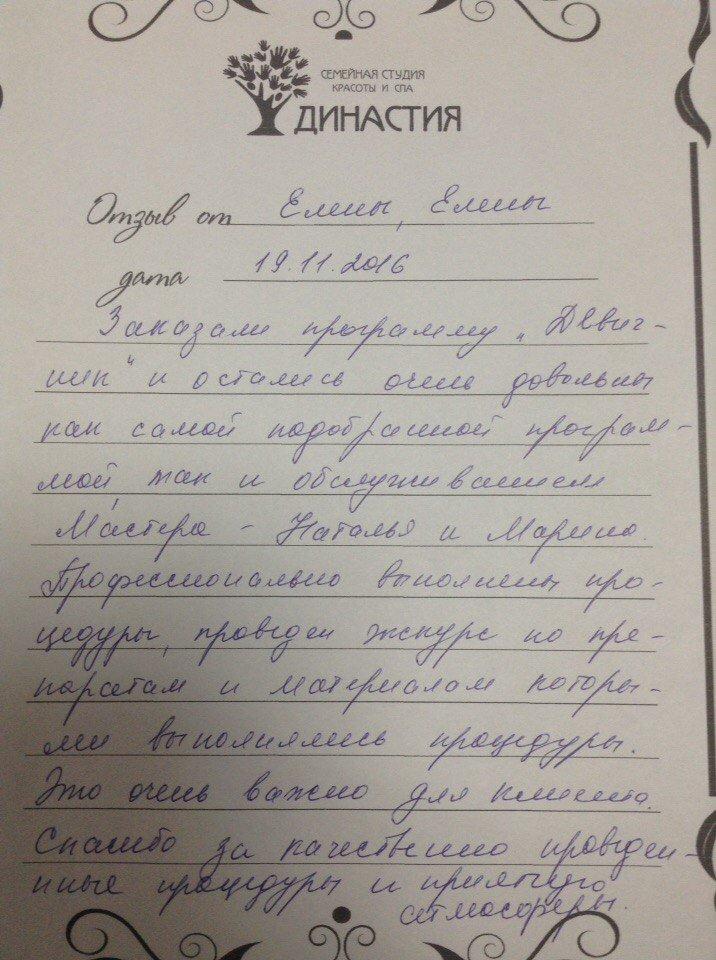 СЕМЕЙНАЯ СТУДИЯ
КРАСОТЫ И СПА
ДИНАСТИЯ
Отзыв от Елены, Елены
дата 19.11.2016
Заказали программу „Девич-
ник" и остались очень довольны
как самой подобранной програм-
мой, так и обслуживанием
Мастера - Наталья и Марина.
Профессионально выполнены про-
цедуры, проведен экскурс по пре-
паратам и материалам которы-
ми выполнялись процедуры.
Это очень важно для клиента.
Спасибо за качественно проведен-
нные процедуры и приятную
атмосферы.